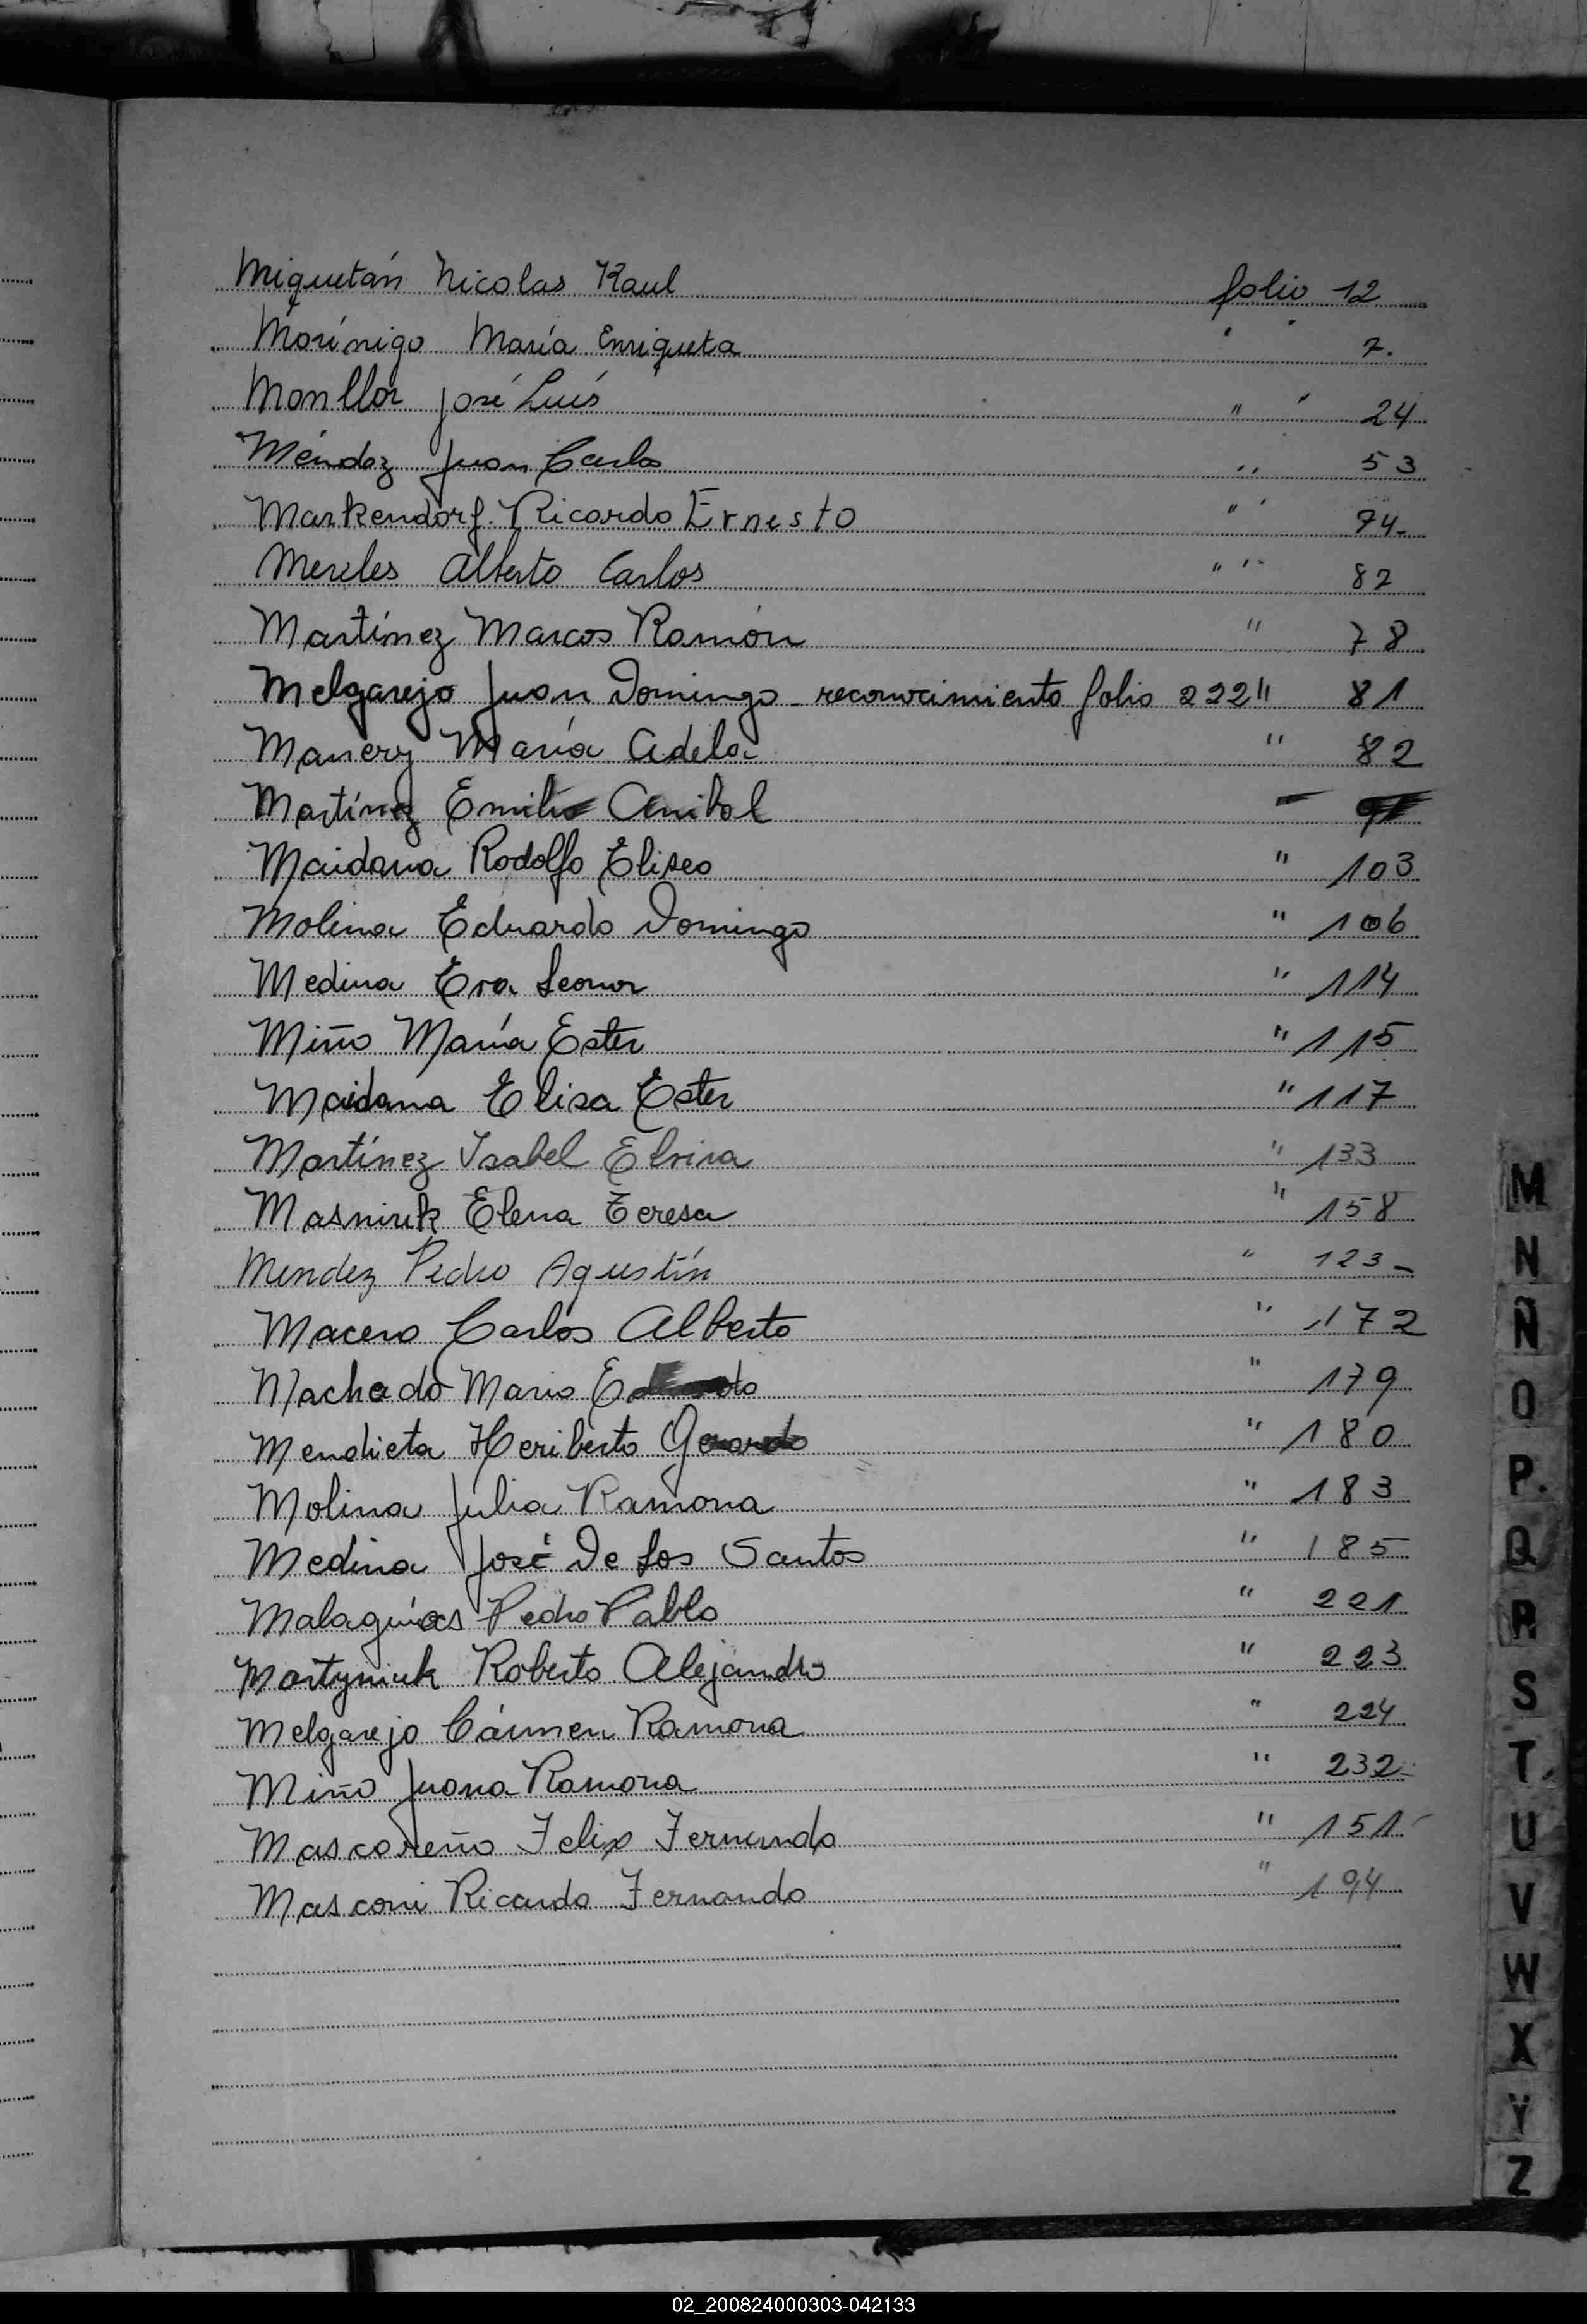 Miquetán Nicolas Raul folio 12
Morínigo María Enriqueta " " 7.
Monllor José Luís " " 24
Méndez Juan Carlos " 53
Markendorf Ricardo Ernesto " 74-
Mereles Alberto Carlos " " 82
Martínez Marcos Ramón " 78
Melgarejo Juan Domingo - reconocimiento folio 222 " 81
Manery María Adela " 82
Martínez Emilio Anibal -
Maidana Rodolfo Eliseo " 103
Molina Eduardo Domingo " 106
Medina Eva Leonor " 114
Miño María Ester " 115
Maidana Elisa Ester " 117
Martínez Isabel Elvira " 133
Masniuk Elena Teresa " 158
Mendez Pedro Agustín " 123-
Macero Carlos Alberto " 172
Machado Mario " 179
Mendieta Heriberto Gerardo " 180
Molina Julia Ramona " 183
Medina José De Los Santos " 185
Malaguías Pedro Pablo " 221
Martyniuk Roberto Alejandro " 223
Melgarejo Cármen Ramona " 224
Miño Juana Ramona " 232
Mascareño Felix Fernando " 151
Masconi Ricardo Fernando " 194
M
N
Ñ
O
P.
Q
R
S
T
U
V
W
X
Y
Z
02_200824000303-042133